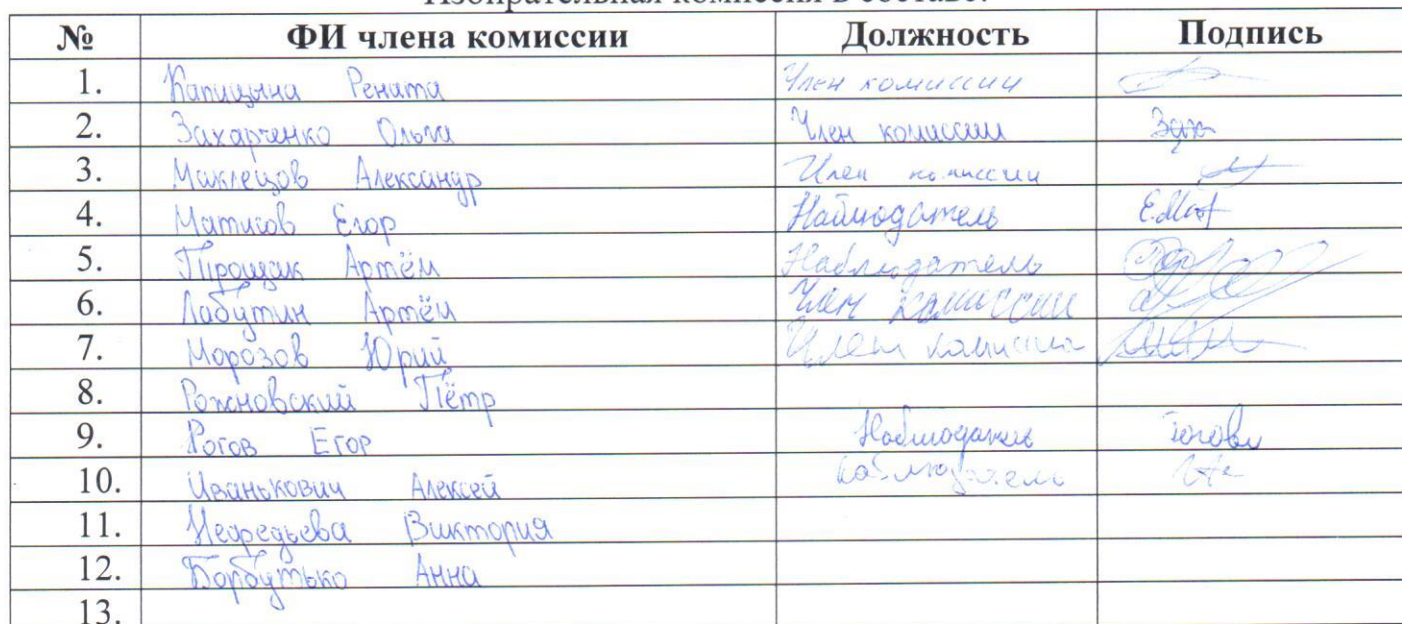 Избирательная комиссия в составе:
№ ФИ члена комиссии Должность Подпись
1. Капицына Рената Член комиссии
2. Захарченко Ольга Член комиссии Зах
3. Маклецов Александр Член комиссии
4. Матисов Егор Наблюдатель Е.Мат
5. Прощак Артём Наблюдатель
6. Лабутин Артём Член комиссии
7. Морозов Юрий Член комиссии
8. Рожновский Пётр
9. Рогов Егор Наблюдатель
10. Иванькович Алексей Наблюдатель
11. Виктория
12. Борбутько Анна
13.